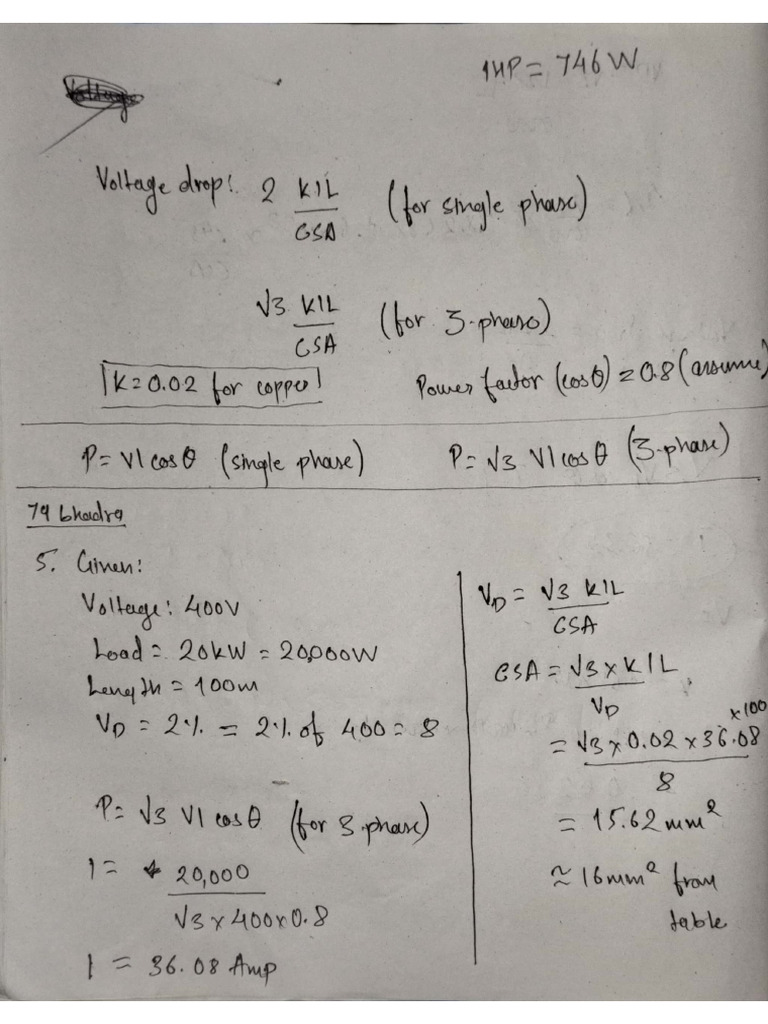 1HP = 746 W
Voltage drop: 2 KIL (for single phase)
CSA
√3 KIL (for 3-phase)
CSA
K = 0.02 for copper
Power factor (cosθ) = 0.8 (assume)
P = VI cosθ (single phase)
P = √3 VI cosθ (3-phase)
74 bhadra
5. Given:
Voltage: 400V
Load = 20kW = 20,000W
Length = 100m
VD = 2% = 2% of 400 = 8
P = √3 VI cosθ (for 3-phase)
I = 20,000
√3 × 400 × 0.8
I = 36.08 Amp
VD = √3 KIL
CSA
CSA = √3 × KIL
VD
= √3 × 0.02 × 36.08 × 100
8
= 15.62 mm²
≈ 16mm² from
table